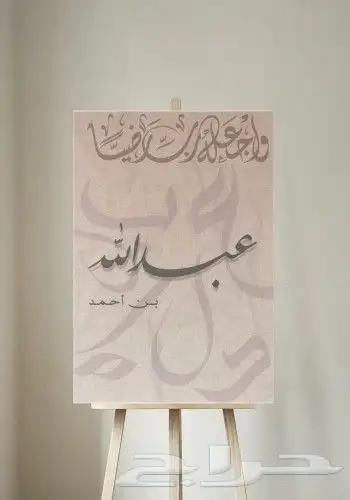 واجعله رب رضيا
عبدالله
بن أحمد
حراج